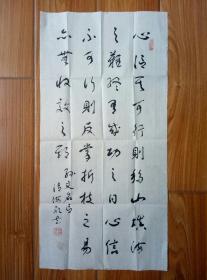 心信其可行則移山填海
之難終有成功之日心信
不可行則反掌折枝之易
亦無收效之期
孫文名句